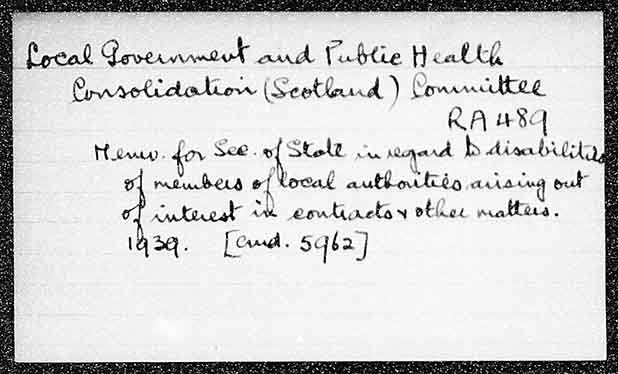 Local Government and Public Health
Consolidation (Scotland) Committee
RA 489
Memo. for Sec. of State in regard to disabilities
of members of local authorities arising out
of interest in contracts & other matters.
1939. [Cmd. 5962]